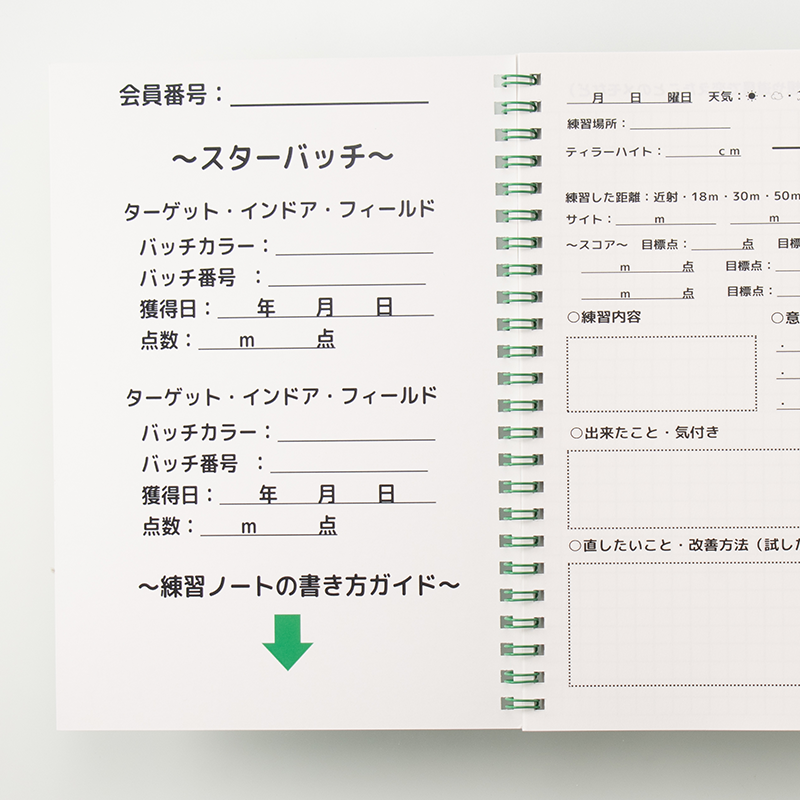 会員番号：
～スターバッチ～
ターゲット・インドア・フィールド
バッチカラー：
バッチ番号　：
獲得日：　年　月　日
点数：　m　点
ターゲット・インドア・フィールド
バッチカラー：
バッチ番号　：
獲得日：　年　月　日
点数：　m　点
～練習ノートの書き方ガイド～
月　日　曜日　天気：☀・☁・
練習場所：
ティラーハイト：　cm
練習した距離：近射・18m・30m・50m
サイト：　m　　m
～スコア～　目標点：　点　目標
m　点　目標点：
m　点　目標点：
○練習内容　○意
・
・
・
○出来たこと・気付き
○直したいこと・改善方法（試した